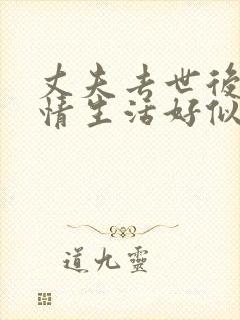 丈夫去世後
情生活好似
道九靈